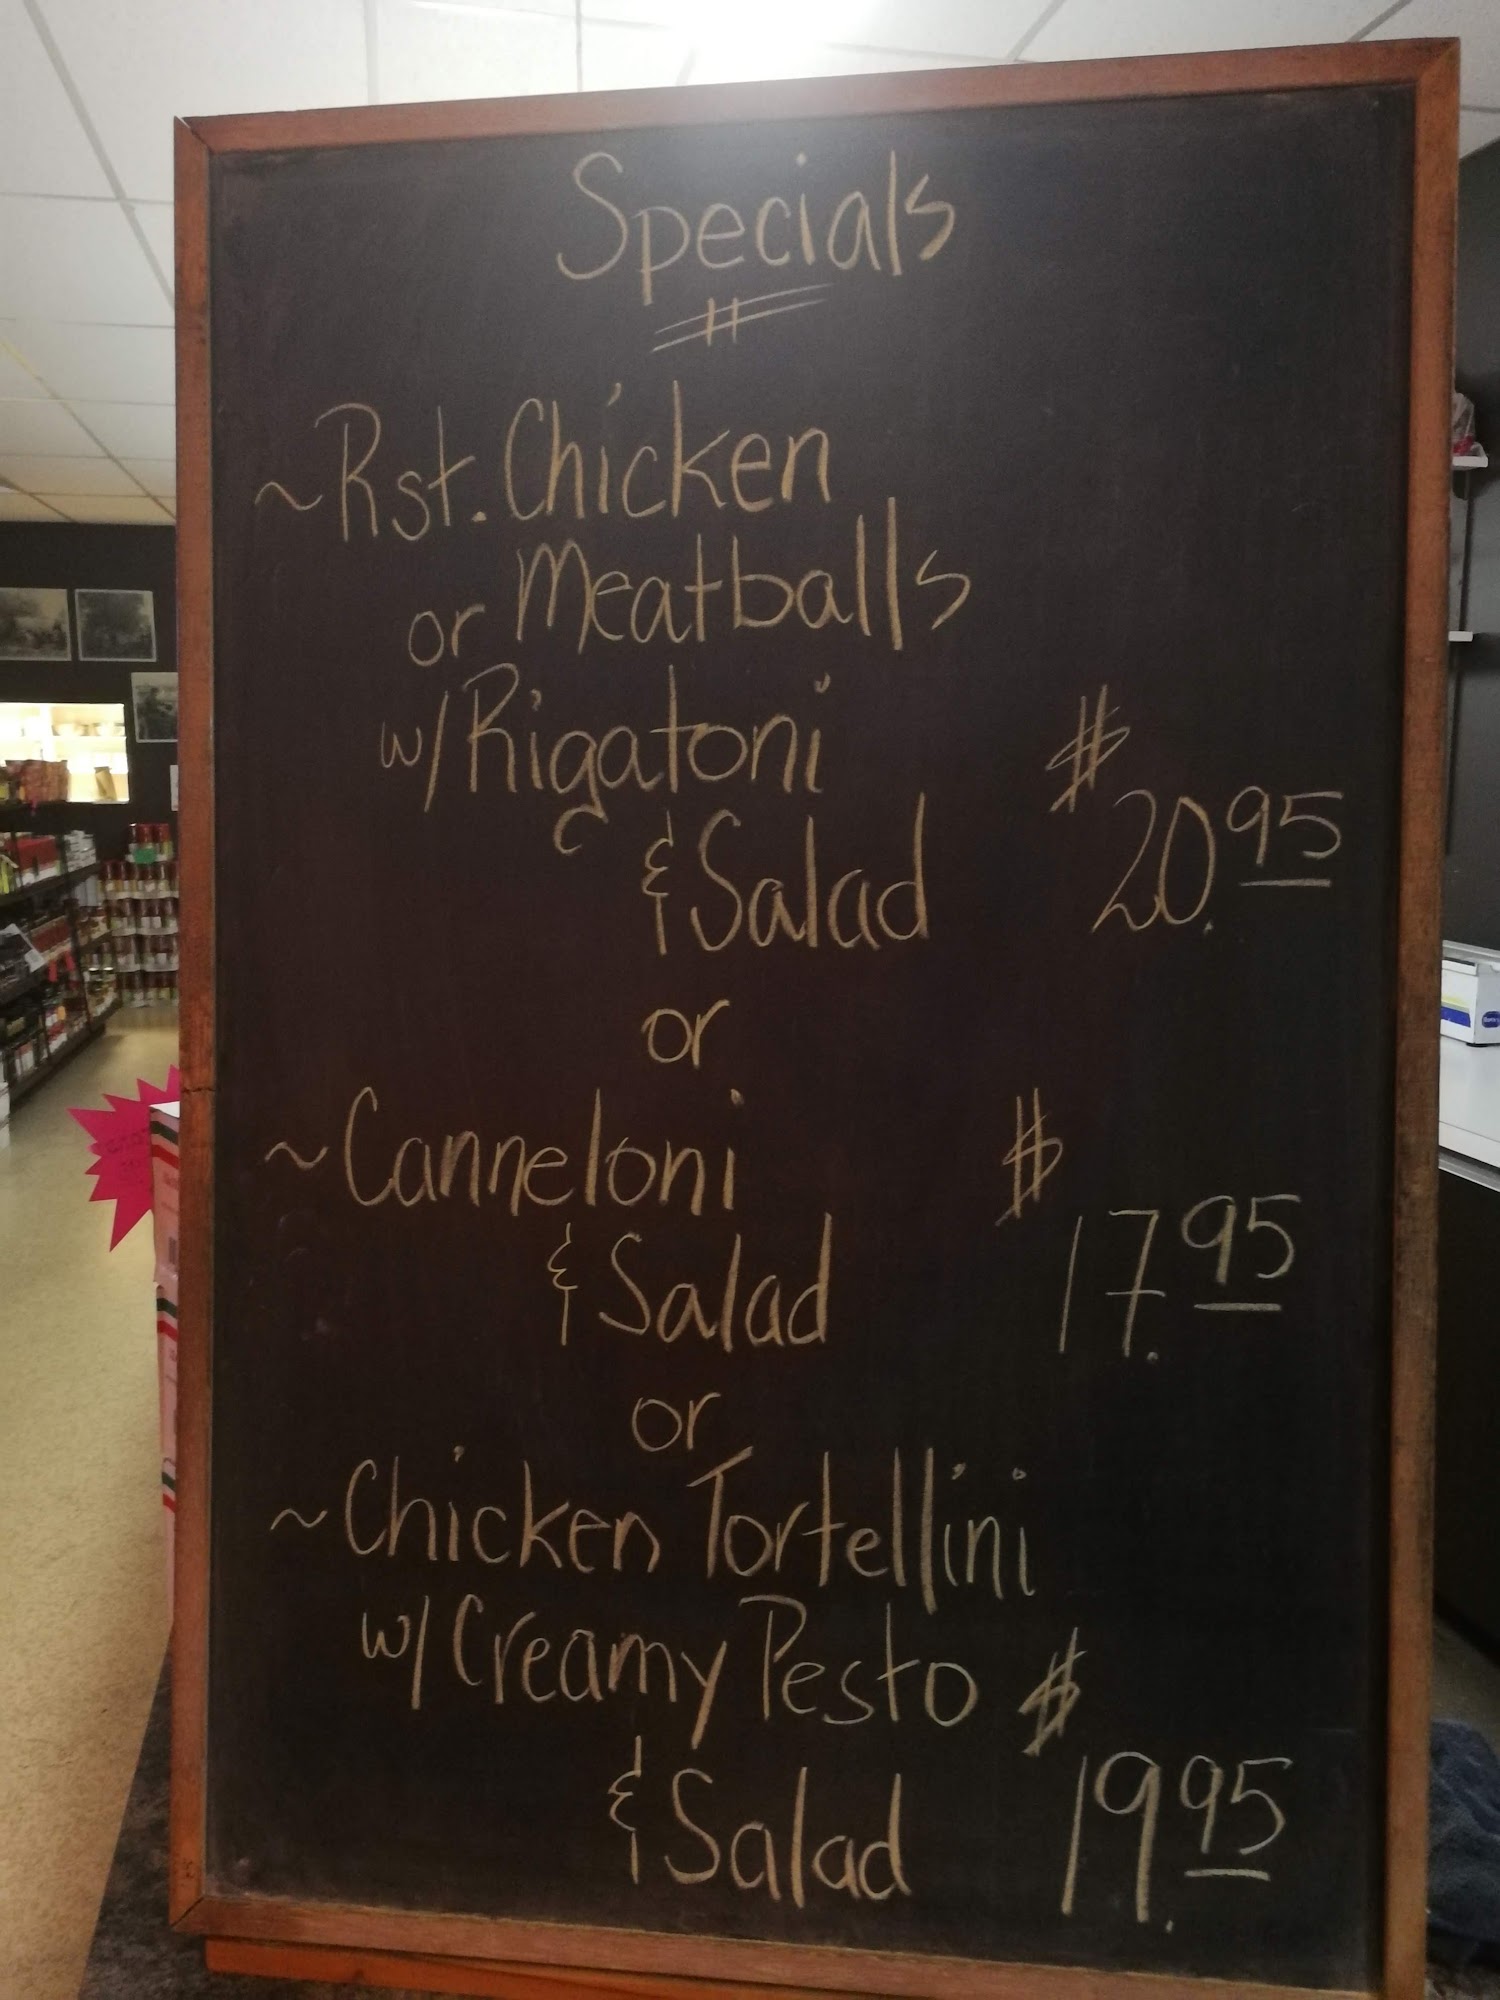 Specials
~Rst. Chicken
or Meatballs
w/Rigatoni $
& Salad 20.95
or
~Canneloni $
& Salad 17.95
or
~Chicken Tortellini
w/Creamy Pesto $
& Salad 19.95